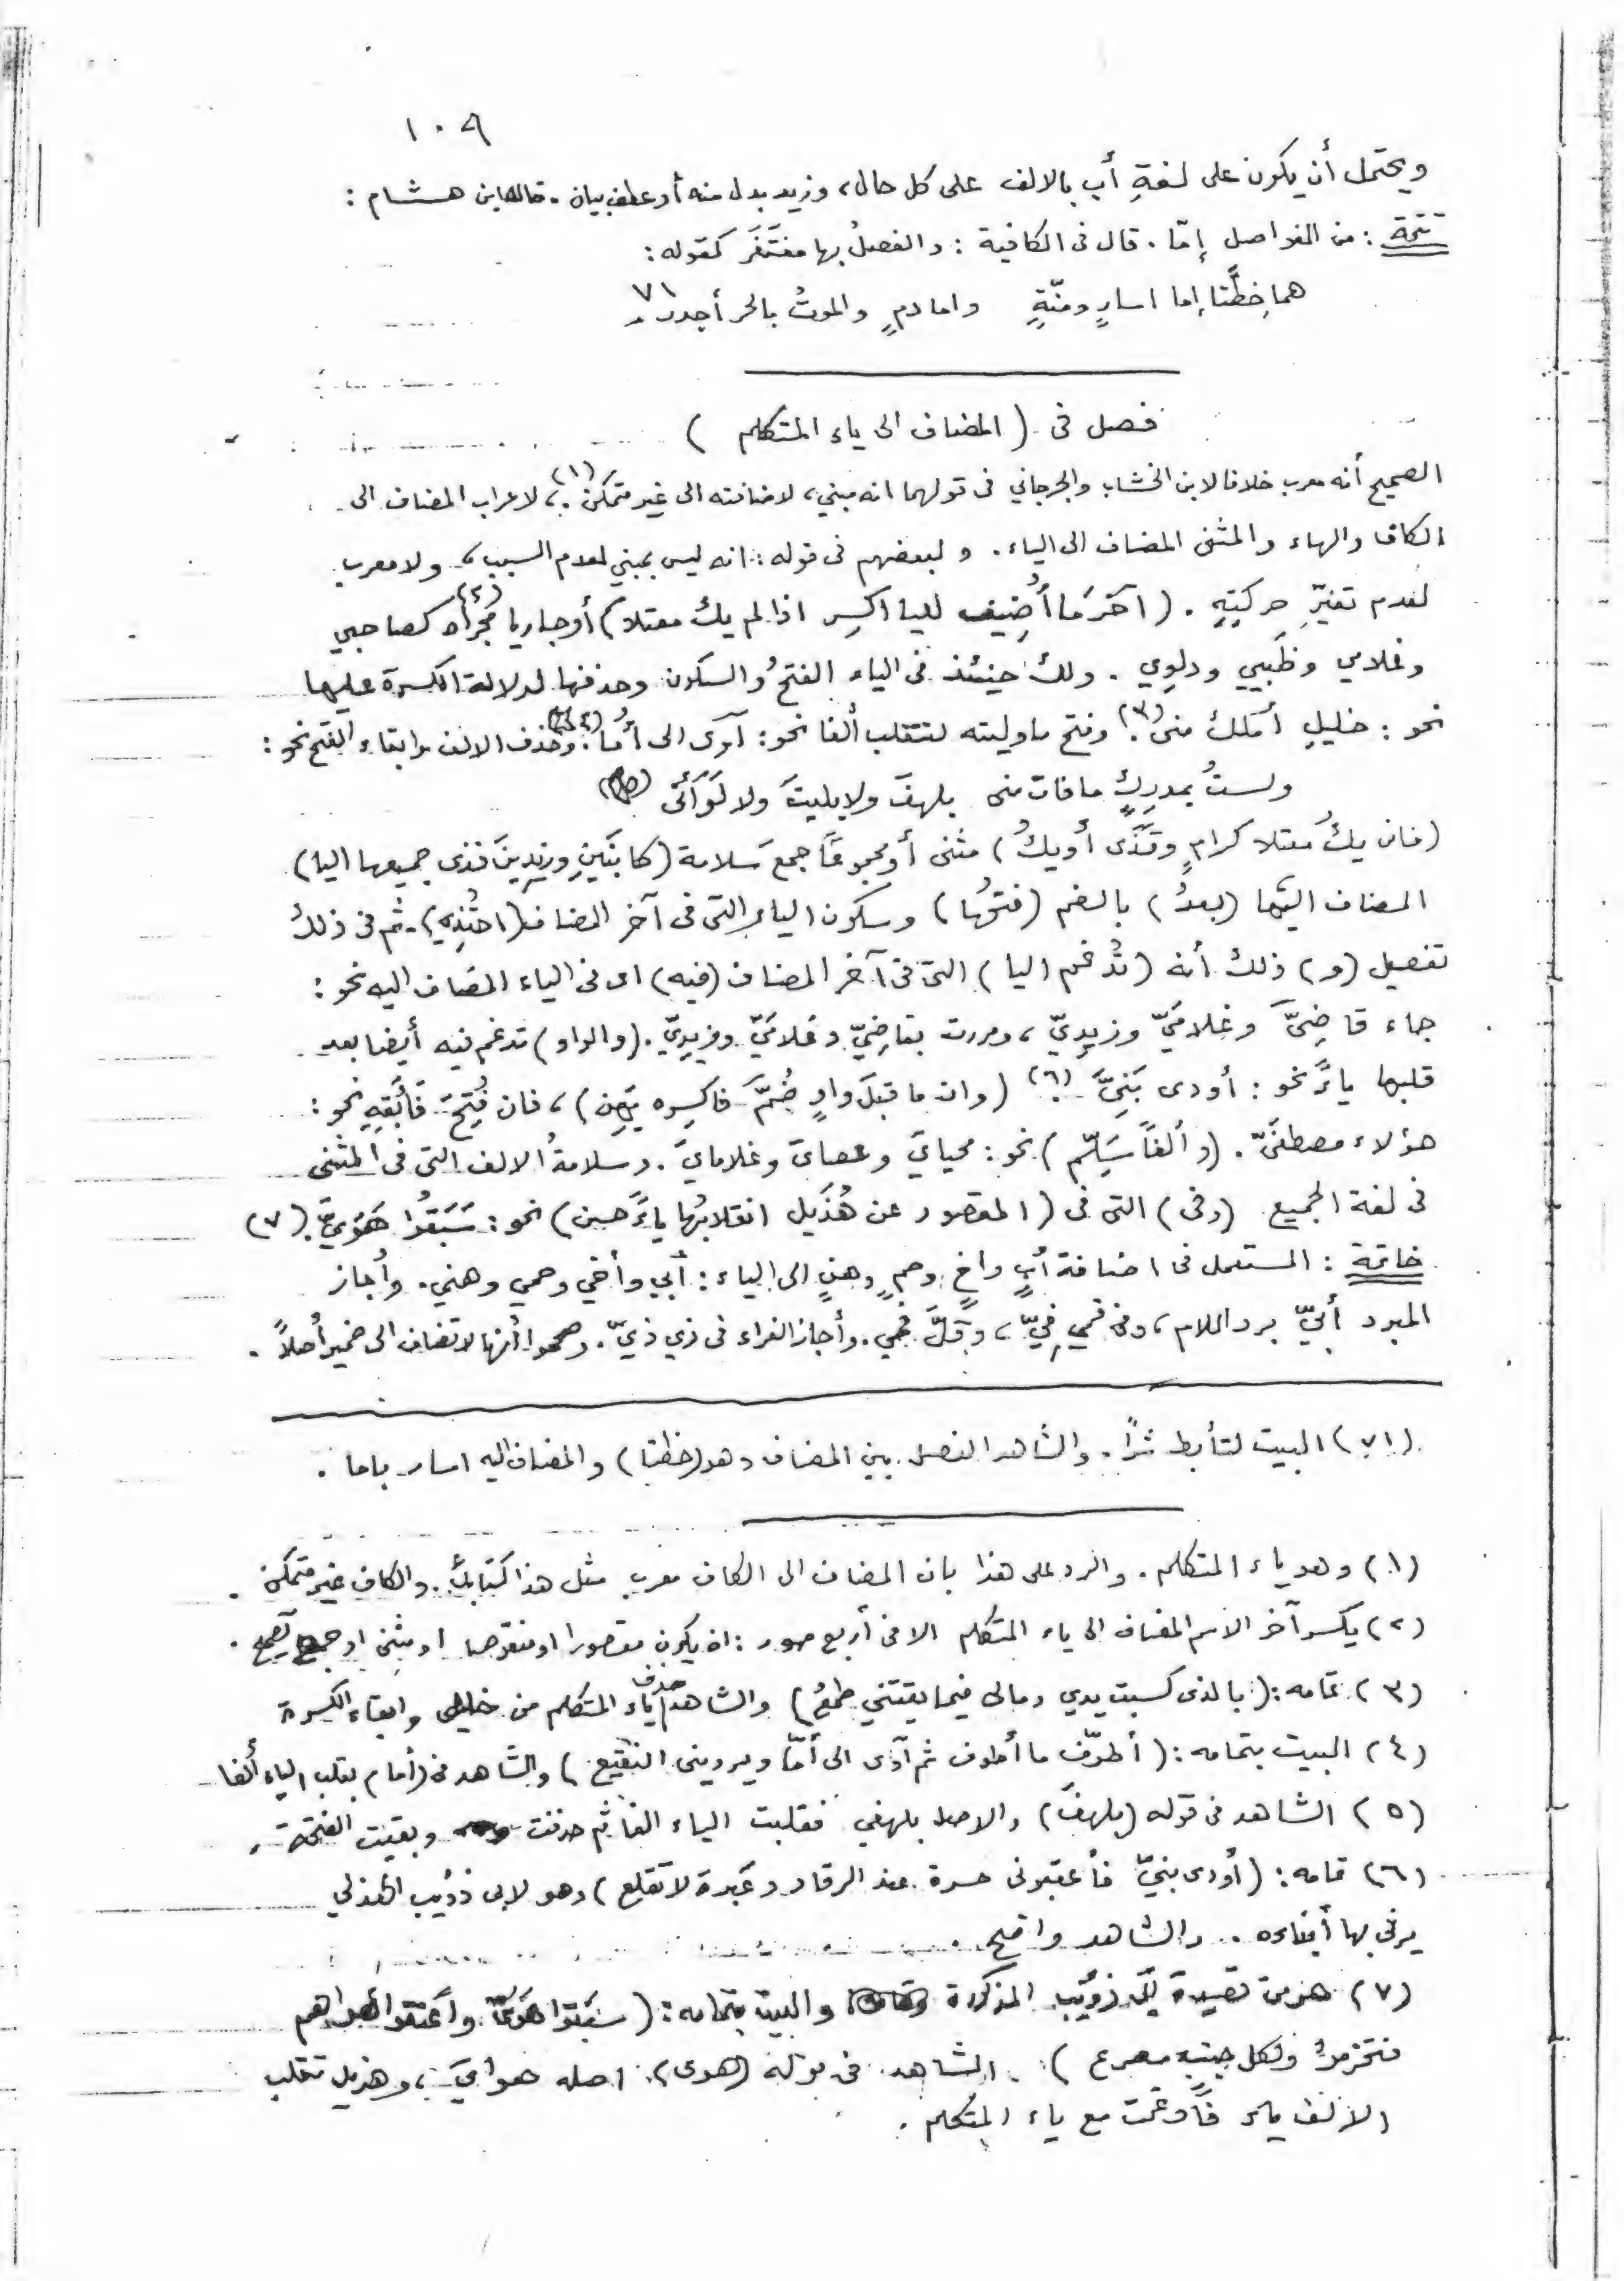 ١٠٩
ويحتمل أن يكون على لغةِ أب بالالف على كل حال، وزيد بدل منه أو عطف بيان. قاله ابن هشام:
تتمة: من الفواصل إمّا. قال فى الكافية: والفصلُ بها مغتَفَر كقوله:
هما خطّتا إما اسارٍ ومنّةٍ واما دمٍ والموتُ بالحر أجدر ٧١
فصل فى (المضاف الى ياء المتكلم)
الصحيح أنه معرب خلافا لابن الخشاب والجرجاني فى قولهما انه مبني، لاضافته الى غير متمكن (١)، لاعراب المضاف الى
الكاف والهاء والمثنى المضاف الى الياء. و لبعضهم فى قوله: انه ليس بمبني لعدم السبب، ولا معرب
لعدم تغيّرِ حركتِهِ. (آخرَ ما أُضِيف لليا اكسِر اذا لم يك معتلا) أو جاريا مُجراه (٢) كصاحبي
وغلامي وظَبيي ودلوِي. ولك حينئذ فى الياء الفتحُ والسكون وحذفها لدلالة الكسرة عليها
نحو: خليلِ أملك منى (٣). وفتح ما وليته لتنقلب ألفا نحو: آوى الى أُمّا (٤). وحذف الالف وابقاء الفتح نحو:
ولستُ بمدرِكٍ ما فات منى بلهفَ ولا بليتَ ولا لَوَأنّى (٥)
(فان يكُ معتلا كرامٍ وقَذًى أو يكُ) مثنى أو مجموعًا جمعَ سَلامة (كابنَينِ وزيدِينَ فذى جميعها اليا)
المضاف اليها (بعدُ) بالضم (فتحُها) وسكون الياء التى فى آخر المضاف (احتُذِى). ثم فى ذلك
تفصيل (و) ذلك أنه (تُدغم اليا) التى فى آخر المضاف (فيه) اى فى الياء المضاف اليه نحو:
جاء قاضِىَّ وغلامَيّ وزيدِيّ، ومررت بقاضِيّ وغلامَيّ وزيدِيّ. (والواو) تدغم فيه أيضا بعد
قلبها ياءً نحو: أودى بَنِيَّ (٦) (وان ما قبلَ واوٍ ضُمَّ فاكسِره يَهُن)، فان فُتِحَ فَأَبْقِهِ نحو:
هؤلاء مصطفَيّ. (وألفاً سَلِّم) نحو: محيايَ وعصايَ وغلامايَ. وسلامةُ الالف التى فى المثنى
فى لغة الجميع (وفى) التى فى (المقصور عن هُذَيل انقلابُها ياءً حسن) نحو: سَبَقُوا هَوَيّ. (٧)
خاتمة: المستعمل فى اضافة أبٍ واخٍ وحمٍ وهنٍ الى الياء: أبي وأخي وحمي وهني. وأجاز
المبرد أبيّ برد اللام، وفى فمي فِيّ، وقلّ فمي. وأجاز الفراء فى ذي ذيّ. وصححوا أنها لا تضاف الى ضمير أصلاً.
(٧١) البيت لتأبط شراً. والشاهد الفصل بين المضاف وهو (خطتا) والمضاف اليه اسار باما.
(١) وهو ياء المتكلم. والرد على هذا بان المضاف الى الكاف معرب مثل هذا كتابك. والكاف غير متمكن.
(٢) يكسر آخر الاسم المضاف الى ياء المتكلم الا فى أربع صور: ان يكون مقصورا او منقوصا او مثنى او جمع تصحيح.
(٣) تمامه: (بالذى كسبت يدي ومالى فيما يقتني طمعُ) والشاهد حذف ياء المتكلم من خليلى وابقاء الكسرة
(٤) البيت بتمامه: (أطوّف ما أطوف ثم آوى الى أمّا ويروينى النقيع) والشاهد فى (أما) بقلب الياء ألفا
(٥) الشاهد فى قوله (بلهفَ) والاصل بلهفي فقلبت الياء الفا ثم حذفت وبقيت الفتحة.
(٦) تمامه: (أودى بنيّ فأعقبونى حسرة عند الرقاد وعَبرة لا تقلع) وهو لابى ذؤيب الهذلي
يرثى بها أبناءه. والشاهد واضح.
(٧) هو من قصيدة أبى ذؤيب المذكورة والبيت بتمامه: (سبقوا هَوَيّ واعنقوا لهواهم
فتخرموا ولكل جنب مصرع). الشاهد فى قوله (هوى)، اصله هوايَ، وهذيل تقلب
الالف ياء فأدغمت مع ياء المتكلم.